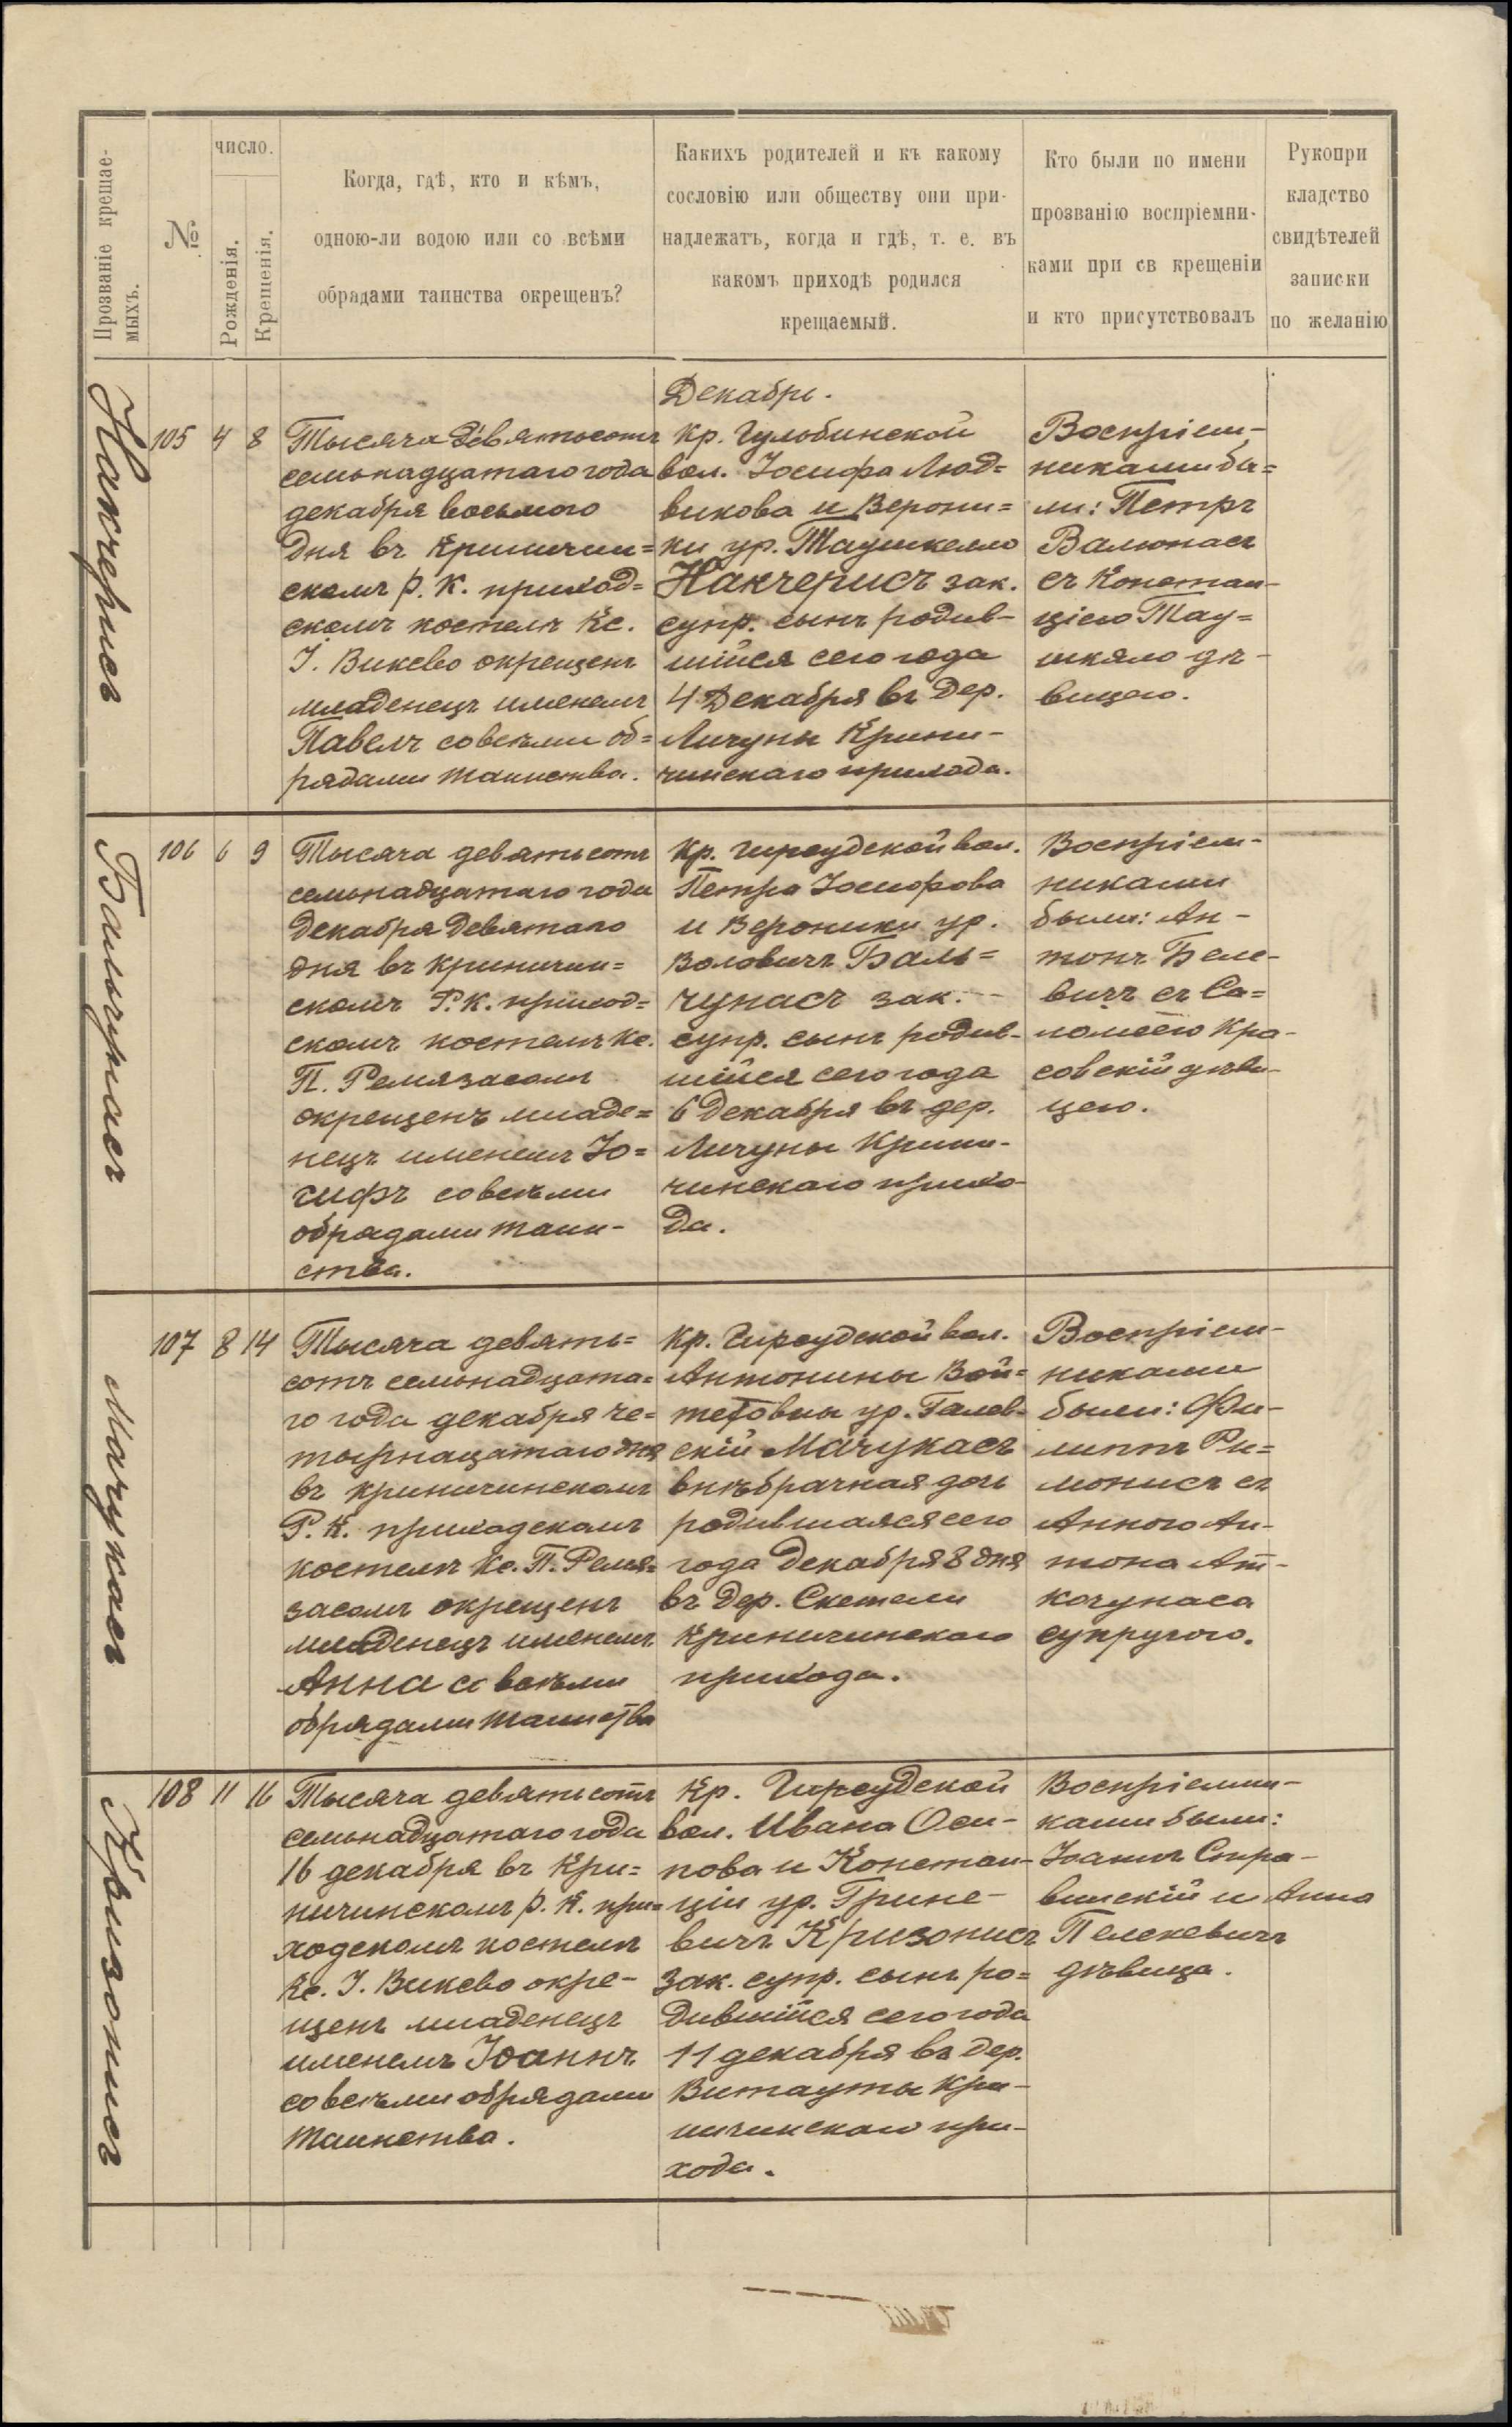 Прозваніе крещае-
мыхъ.
№
число.
Рожденія.
Крещенія.
Когда, гдѣ, кто и кѣмъ,
одною-ли водою или со всѣми
обрядами таинства окрещенъ?
Какихъ родителей и къ какому
сословію или обществу они при-
надлежатъ, когда и гдѣ, т. е. въ
какомъ приходѣ родился
крещаемый.
Кто были по имени
прозванію воспріемни-
ками при св крещеніи
и кто присутствовалъ
Рукопри
кладство
свидѣтелей
записки
по желанію
Декабрь.
Накчерисъ
105 4 8
Тысяча девятьсотъ
семьнадцатаго года
декабря восьмого
дня въ Криничин=
скомъ р. к. приход=
скомъ костелѣ Кс.
І. Викево окрещенъ
младенецъ именемъ
Павелъ совсѣми об=
рядами таинства.
Кр. Гульбинской
вол. Іосифа Люд=
викова и Верони=
ки ур. Таушкелло
Накчерисъ зак.
супр. сынъ родив-
шійся сего года
4 Декабря въ дер.
Личуны Крини-
чинскаго прихода.
Воспріем-
никами бы=
ли: Петръ
Валюнасъ
съ Констан-
ціею Тау=
шкяло дѣ-
вицею.
Бальчунасъ
106 6 9
Тысяча девятьсотъ
семьнадцатаго года
декабря девятаго
дня въ Криничин=
скомъ Р. К. приход=
скомъ костелѣ Кс.
П. Ремязасомъ
окрещенъ младе=
нецъ именемъ Іо=
сифъ совсѣми
обрядами таин-
ства.
Кр. Гироудской вол.
Петра Іосифова
и Вероники ур.
Воловичъ Баль=
чунасъ зак.
супр. сынъ родив-
шійся сего года
6 Декабря въ дер.
Личуны Крини-
чинскаго прихо-
да.
Воспріем-
никами
были: Ан-
тонъ Беле-
вичъ съ Са=
ломеею Кра-
совскій дѣви-
цею.
Мачукасъ
107 8 14
Тысяча девять=
сотъ семьнадцата=
го года декабря че=
тырнацатаго дня
въ Криничинскомъ
Р. К. приходскомъ
костелѣ Кс. П. Ремя=
засомъ окрещенъ
младенецъ именемъ
Анна со всѣми
обрядами таинства
Кр. Гироудской вол.
Антонины Вой=
тетовны ур. Галев-
скій Мачукасъ
внѣбрачная дочь
родившаяся сего
года Декабря 8 дня
въ дер. Скетели
Криничинскаго
прихода.
Воспріем-
никами
были: Фи-
липпъ Ри=
монисъ съ
Анною Ан-
тона Ат-
кочунаса
супругою.
Кризонисъ
108 11 16
Тысяча девятьсотъ
семьнадцатаго года
16 декабря въ Кри=
ничинскомъ р. К. при=
ходскомъ костелѣ
Кс. І. Викево окре-
щенъ младенецъ
именемъ Іоаннъ
со всѣми обрядами
таинства.
Кр. Гироудской
вол. Ивана Оси-
пова и Констан-
ціи ур. Грине-
вичъ Кризонисъ
зак. супр. сынъ ро=
дившійся сего года
11 декабря въ дер.
Витауты Кри-
ничинскаго при-
хода.
Воспріемни-
ками были:
Іоаннъ Стра-
винскій и Анна
Пелекевичъ
дѣвица.